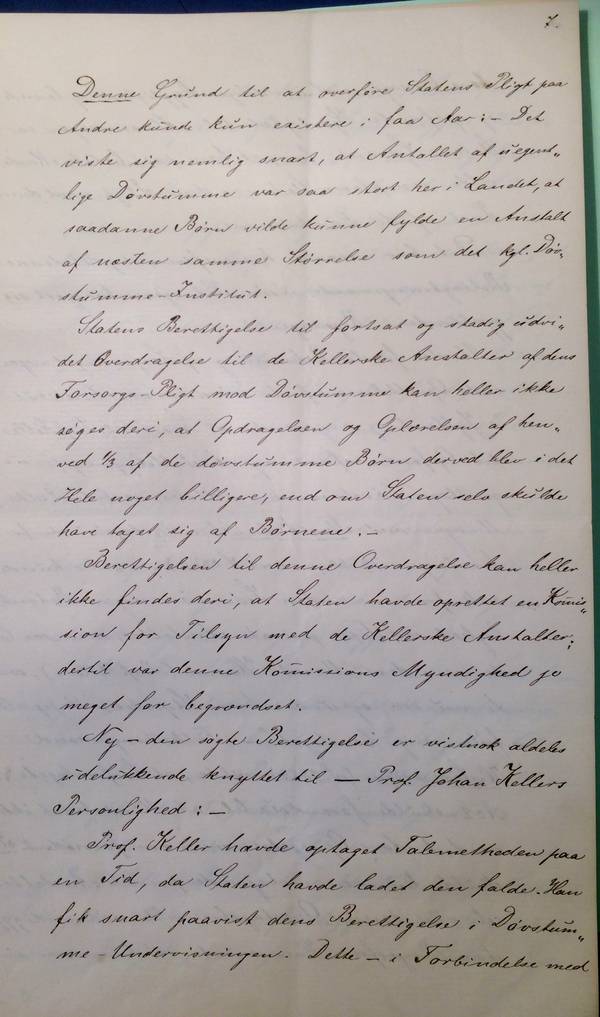 7.
Denne Grund til at overføre Statens Pligt paa
Andre kunde kun existere i faa Aar: – Det
viste sig nemlig snart, at Antallet af uegent„
lige Døvstumme var saa stort her i Landet, at
saadanne Børn vilde kunne fylde en Anstalt
af næsten samme Størrelse som det kgl. Døv„
stumme-Institut.
Statens Berettigelse til fortsat og stadig udvi„
det Overdragelse til de Kellerske Anstalter af dens
Forsorgs-Pligt mod Døvstumme kan heller ikke
søges deri, at Opdragelsen og Oplærelsen af hen„
ved 1/3 af de døvstumme Børn derved blev i det
Hele noget billigere, end om Staten selv skulde
have taget sig af Børnene. –
Berettigelsen til denne Overdragelse kan heller
ikke findes deri, at Staten havde oprettet en Kom̄is„
sion for Tilsyn med de Kellerske Anstalter;
dertil var denne Kom̄issions Myndighed jo
meget for begrændset.
Nej – den søgte Berettigelse er vistnok aldeles
udelukkende knyttet til – Prof. Johan Kellers
Personlighed: –
Prof. Keller havde optaget Talemethoden paa
en Tid, da Staten havde ladet den falde. Han
fik snart paavist dens Berettigelse i Døvstum„
me-Undervisningen. Dette – i Forbindelse med